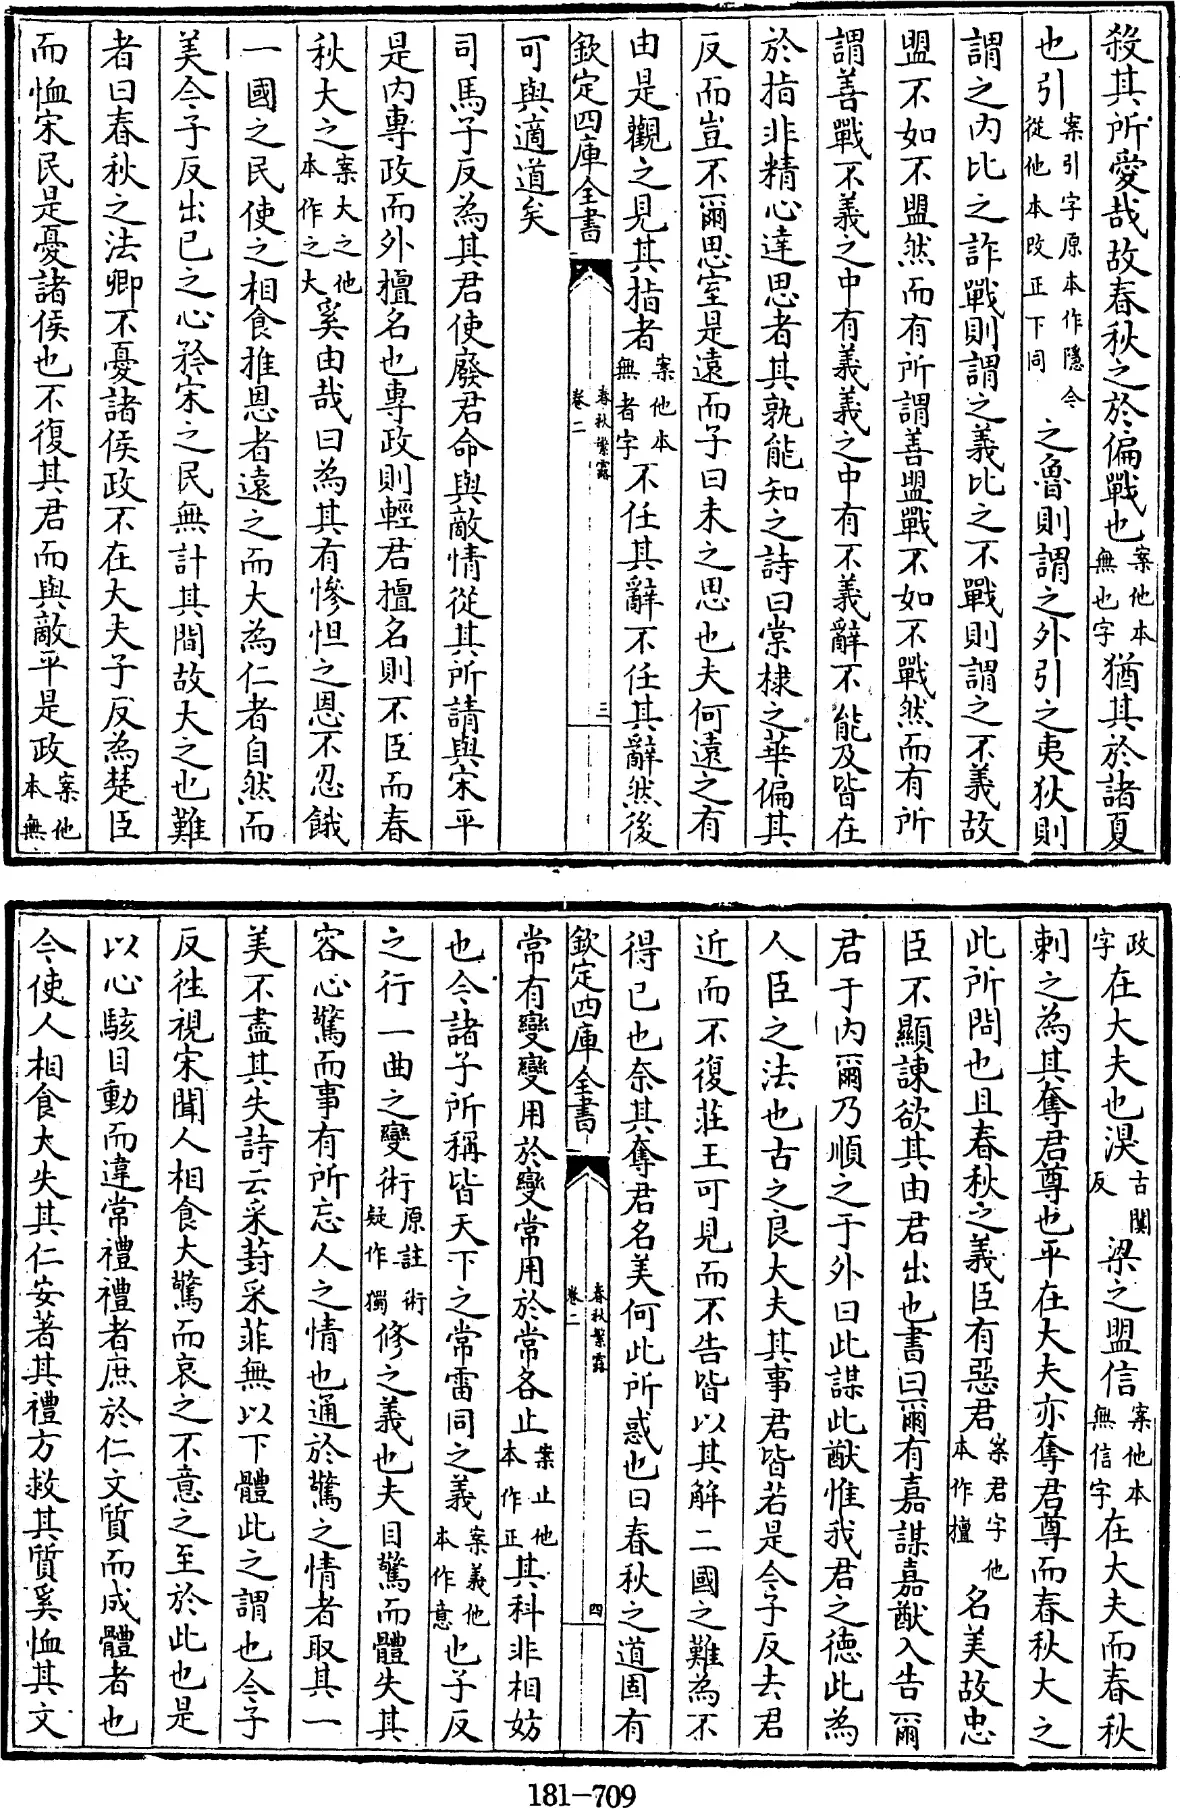 殺其所愛哉故春秋之於偏戰也案他本無也字猶其於諸夏
也引案引字原本作隱今從他本改正下同之魯則謂之外引之夷狄則
謂之內比之詐戰則謂之義比之不戰則謂之不義故
盟不如不盟然而有所謂善盟戰不如不戰然而有所
謂善戰不義之中有義義之中有不義辭不能及皆在
於指非精心達思者其孰能知之詩曰棠棣之華偏其
反而豈不爾思室是遠而子曰未之思也夫何遠之有
由是觀之見其指者案他本無者字不任其辭不任其辭然後
欽定四庫全書
春秋繁露
卷二
三
可與適道矣
司馬子反為其君使廢君命與敵情從其所請與宋平
是內專政而外擅名也專政則輕君擅名則不臣而春
秋大之案大之他本作之大奚由哉曰為其有慘怛之恩不忍餓
一國之民使之相食推恩者遠之而大為仁者自然而
美今子反出己之心矜宋之民無計其間故大之也難
者曰春秋之法卿不憂諸侯政不在大夫子反為楚臣
而恤宋民是憂諸侯也不復其君而與敵平是政案他本無
政字在大夫也湨古闃反梁之盟信案他本無信字在大夫而春秋
刺之為其奪君尊也平在大夫亦奪君尊而春秋大之
此所問也且春秋之義臣有惡君案君字他本作擅名美故忠
臣不顯諫欲其由君出也書曰爾有嘉謀嘉猷入告爾
君于內爾乃順之于外曰此謀此猷惟我君之德此為
人臣之法也古之良大夫其事君皆若是今子反去君
近而不復莊王可見而不告皆以其解二國之難為不
得已也奈其奪君名美何此所惑也曰春秋之道固有
欽定四庫全書
春秋繁露
卷二
四
常有變變用於變常用於常各止案止他本作正其科非相妨
也今諸子所稱皆天下之常雷同之義案義他本作意也子反
之行一曲之變術原註術疑作獨修之義也夫目驚而體失其
容心驚而事有所忘人之情也通於驚之情者取其一
美不盡其失詩云采葑采菲無以下體此之謂也今子
反往視宋聞人相食大驚而哀之不意之至於此也是
以心駭目動而違常禮禮者庶於仁文質而成體者也
今使人相食大失其仁安著其禮方救其質奚恤其文
181-709